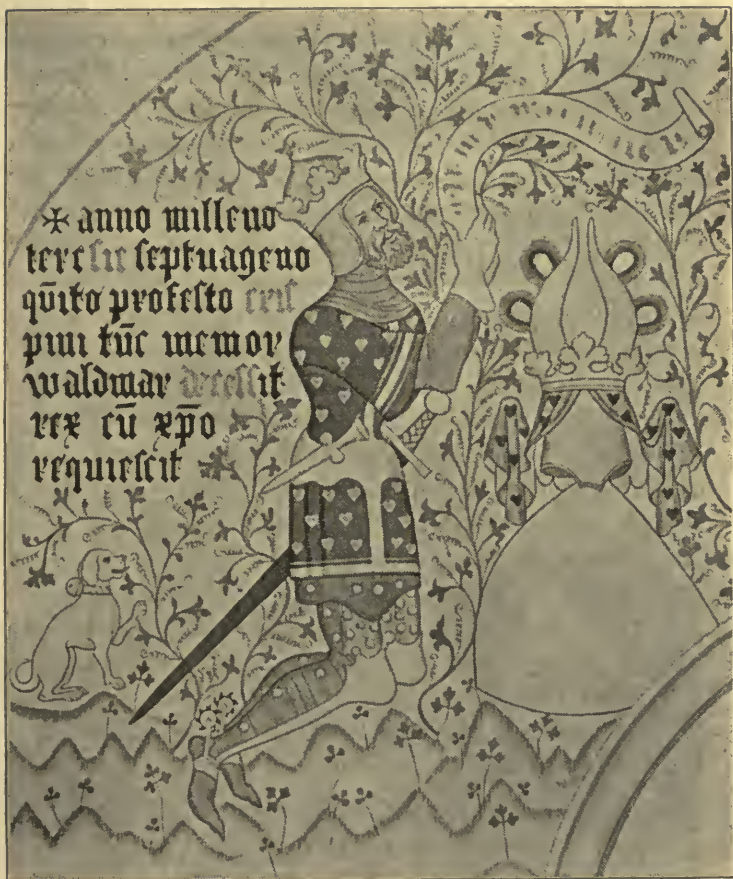 ✠ anno milleno
terc sic septuageno
qūito profesto cris
pini tūc memor
waldmar decessit
rex cū xp̄o
requiescit